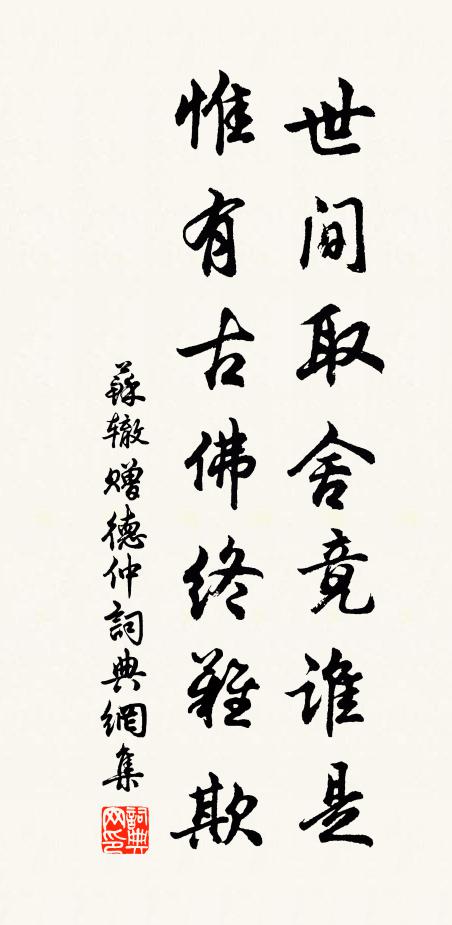 世间取舍竟谁是
惟有古佛终难欺
蘇辙赠德仲詞典網集
詞典网印